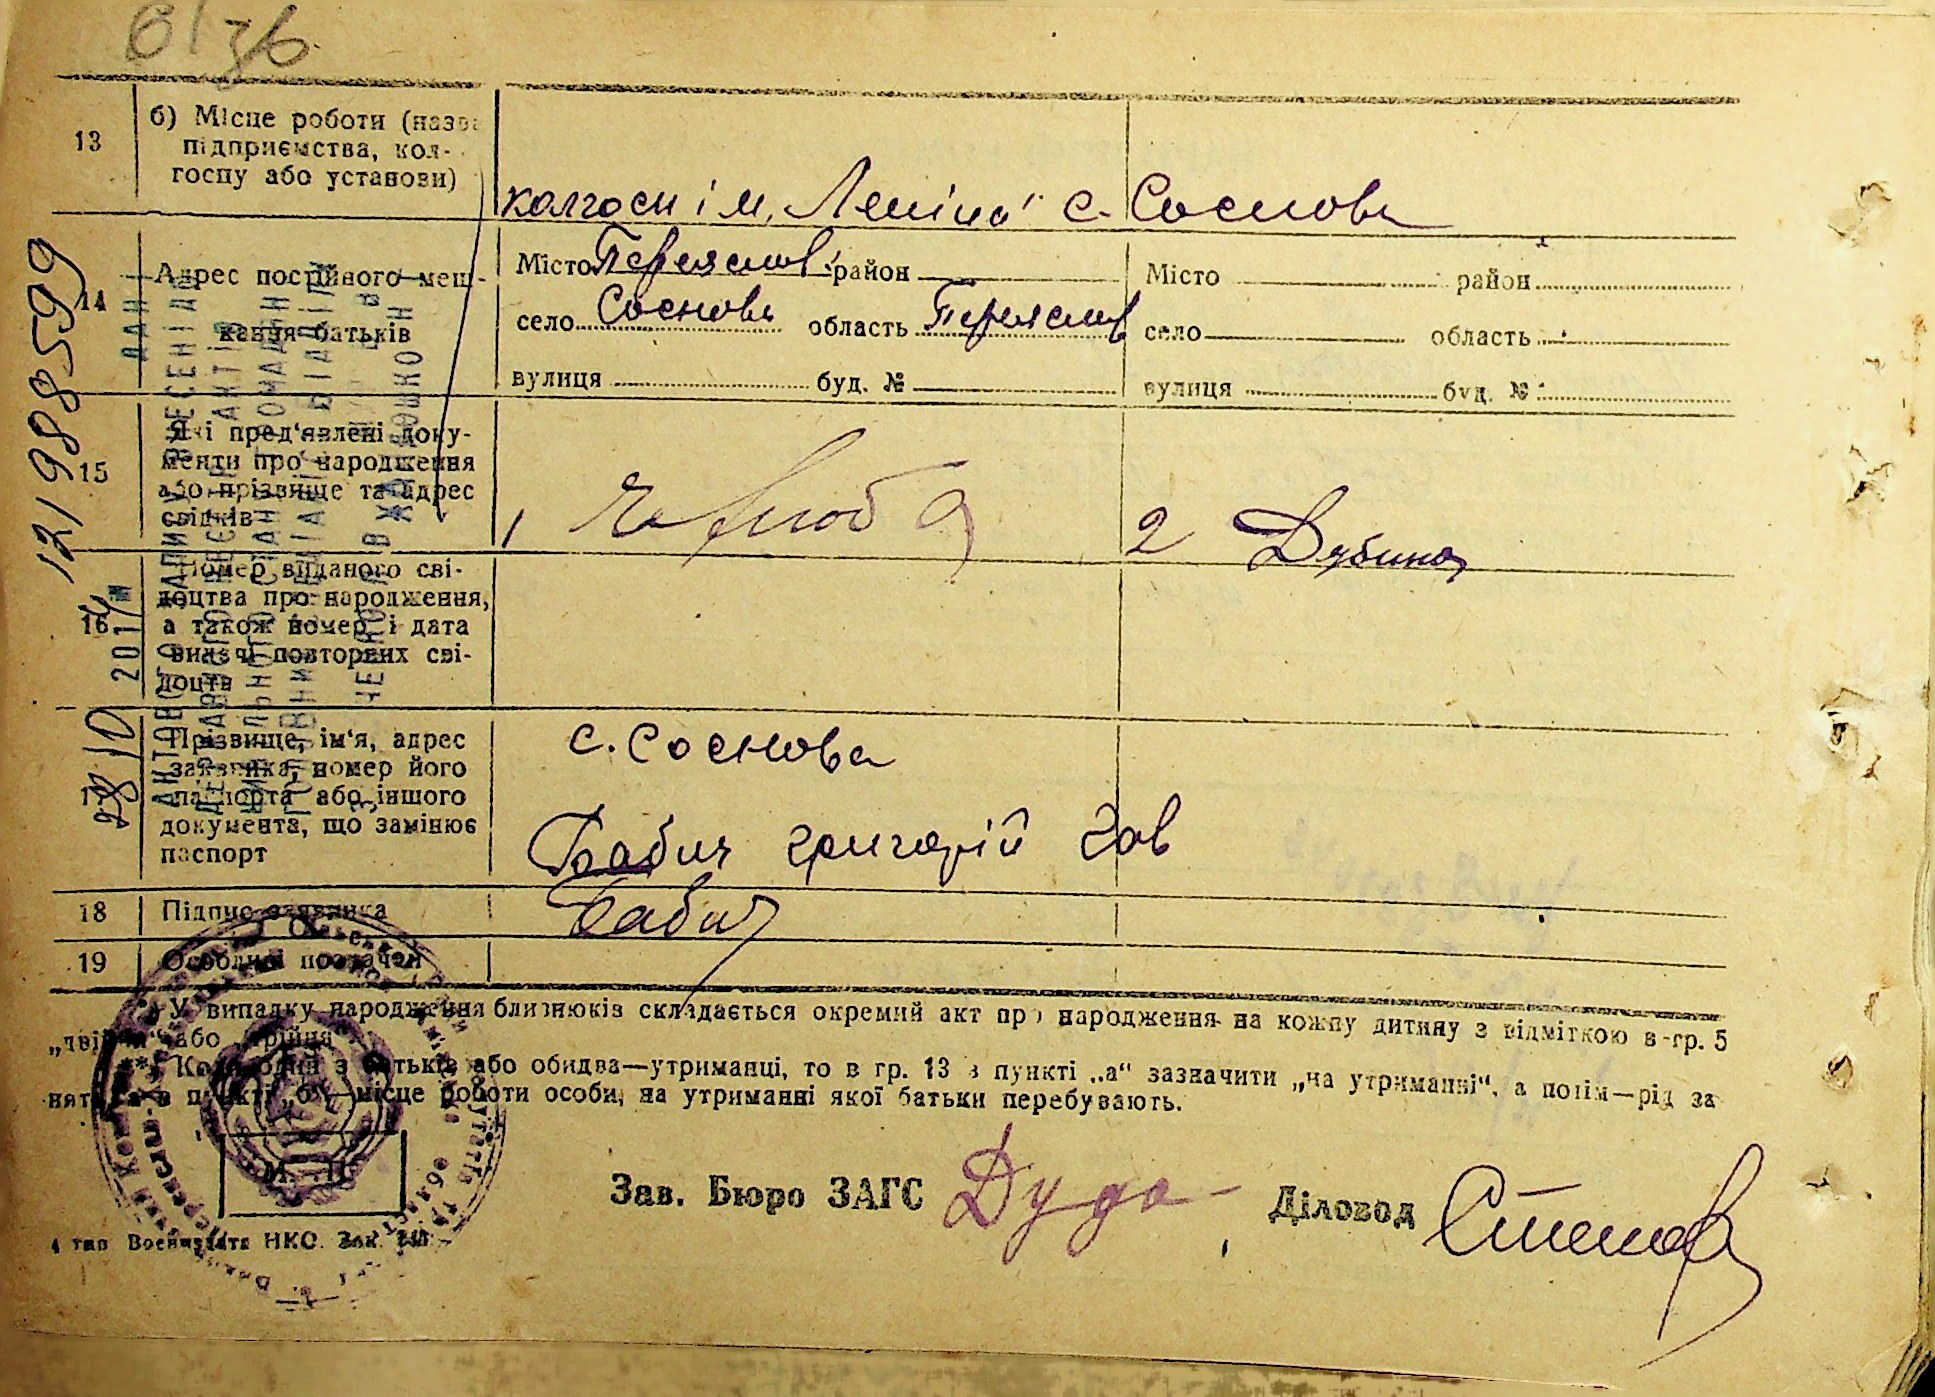 13
б) Місце роботи (назва
підприємства, кол-
госпу або установи)
колгосп ім. Леніна с. Соснова
14
Адрес постійного меш-
кання батьків
Місто Переяслов район
село Соснова область Переяслов
вулиця буд. №
Місто район
село область
вулиця буд. №
15
Які пред'явлені доку-
менти про народження
або прізвище та адрес
свідків
1
2 Дябина
16
Номер виданого сві-
доцтва про народження,
а також номер і дата
видачі повторних сві-
доцтв
17
Прізвище, ім'я, адрес
заявника, номер його
паспорта або іншого
документа, що замінює
паспорт
с. Соснова
Бабич Григорій
18
Підпис заявника
Бабич
19
Особливі позначки
*) У випадку народження близнюків складається окремий акт про народження на кожну дитину з відміткою в гр. 5
„двійня" або „трійня"
**) Коли один з батьків або обидва—утриманці, то в гр. 13 в пункті „а" зазначити „на утриманні", а потім—рід за
няття в пункті „б"—місце роботи особи, на утриманні якої батьки перебувають.
М. П.
Зав. Бюро ЗАГС Дуда
Діловод
4 тип Воениздата НКО. Зак.
12198859​9
28 10 2014